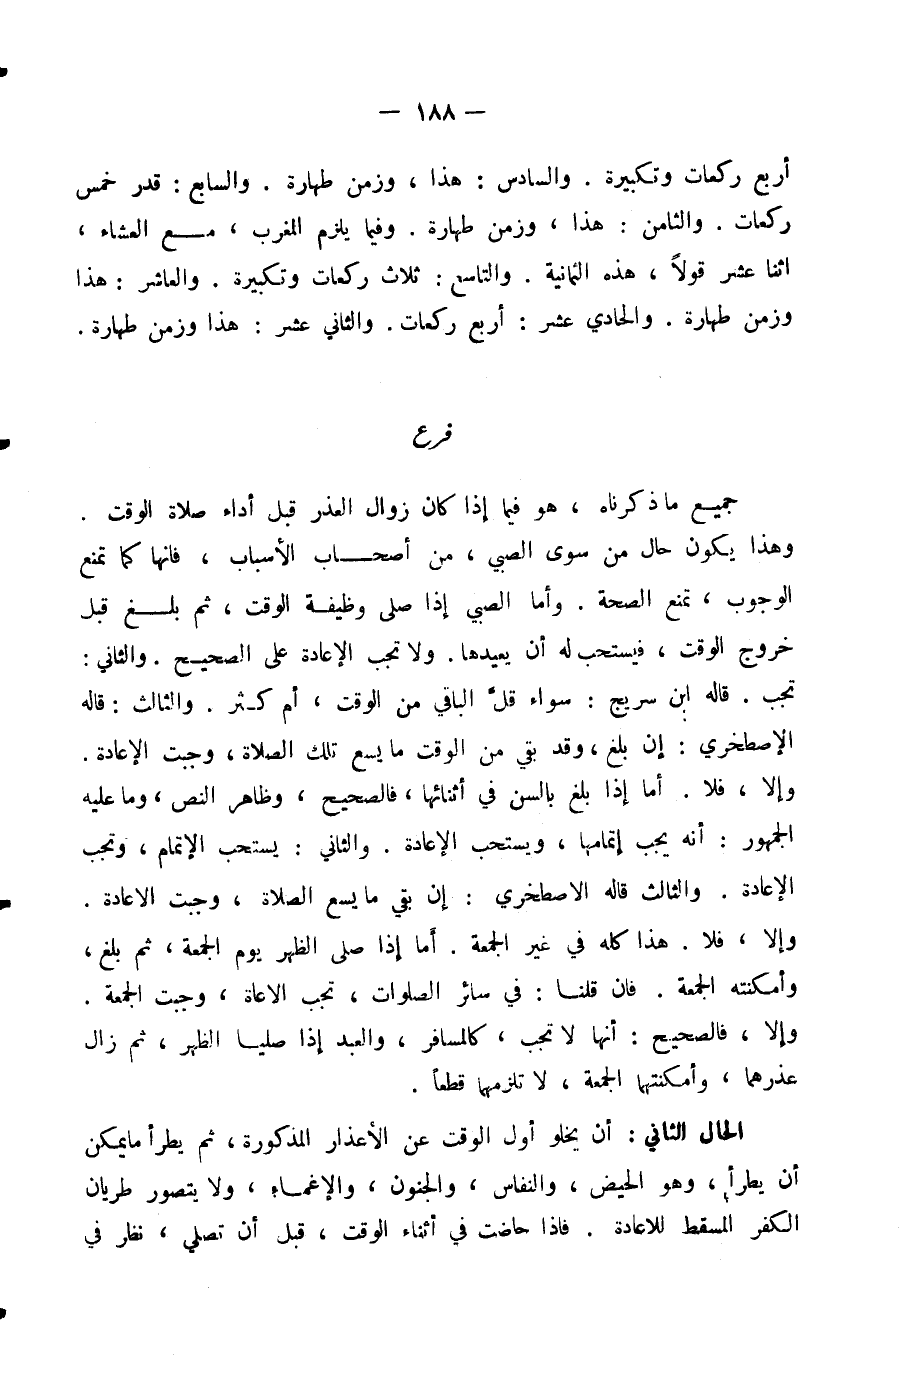 — ١٨٨ —
أربع ركعات وتكبيرة . والسادس : هذا ، وزمن طهارة . والسابع : قدر خمس
ركعات . والثامن : هذا ، وزمن طهارة . وفيما يلزم المغرب ، مع العشاء ،
اثنا عشر قولاً ، هذه الثمانية . والتاسع : ثلاث ركعات وتكبيرة . والعاشر : هذا
وزمن طهارة . والحادي عشر : أربع ركعات . والثاني عشر : هذا وزمن طهارة .
فرع
جميع ما ذكرناه ، هو فيما إذا كان زوال العذر قبل أداء صلاة الوقت .
وهذا يكون حال من سوى الصبي ، من أصحاب الأسباب ، فانها كما تمنع
الوجوب ، تمنع الصحة . وأما الصبي إذا صلى وظيفة الوقت ، ثم بلغ قبل
خروج الوقت ، فيستحب له أن يعيدها . ولا تجب الإعادة على الصحيح . والثاني :
تجب . قاله ابن سريج : سواء قلَّ الباقي من الوقت ، أم كثر . والثالث : قاله
الإصطخري : إن بلغ ، وقد بقي من الوقت ما يسع تلك الصلاة ، وجبت الإعادة .
وإلا ، فلا . أما إذا بلغ بالسن في أثنائها ، فالصحيح ، وظاهر النص ، وما عليه
الجمهور : أنه يجب إتمامها ، ويستحب الإعادة . والثاني : يستحب الإتمام ، وتجب
الإعادة . والثالث قاله الاصطخري : إن بقي ما يسع الصلاة ، وجبت الاعادة .
وإلا ، فلا . هذا كله في غير الجمعة . أما إذا صلى الظهر يوم الجمعة ، ثم بلغ ،
وأمكنته الجمعة . فان قلنا : في سائر الصلوات ، تجب الاعاة ، وجبت الجمعة .
وإلا ، فالصحيح : أنها لا تجب ، كالمسافر ، والعبد إذا صليا الظهر ، ثم زال
عذرهما ، وأمكنتهما الجمعة ، لا تلزمهما قطعاً .
الحال الثاني : أن يخلو أول الوقت عن الأعذار المذكورة ، ثم يطرأ ما يمكن
أن يطرأ ، وهو الحيض ، والنفاس ، والجنون ، والإغماء ، ولا يتصور طريان
الكفر المسقط للاعادة . فاذا حاضت في أثناء الوقت ، قبل أن تصلي ، نظر في